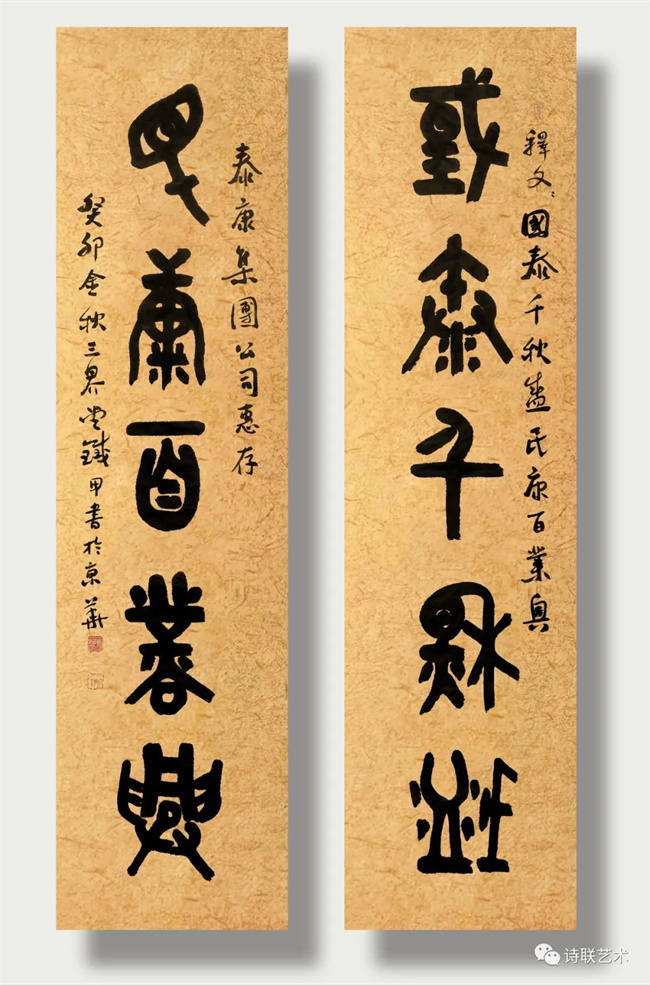 釋文：國泰千秋盛民康百業興
國泰千秋盛
泰康集團公司惠存
民康百業興
癸卯金秋三界堂鐵甲書於京華
诗联艺术